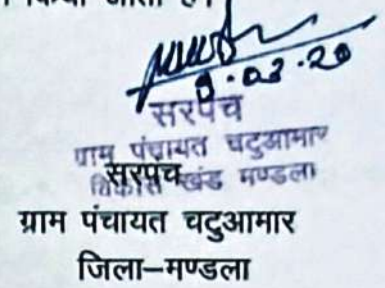 किया जाता है।
9.03.20
सरपंच
ग्राम पंचायत चटुआमार
विकास खंड मण्डला
सरपंच
ग्राम पंचायत चटुआमार
जिला–मण्डला